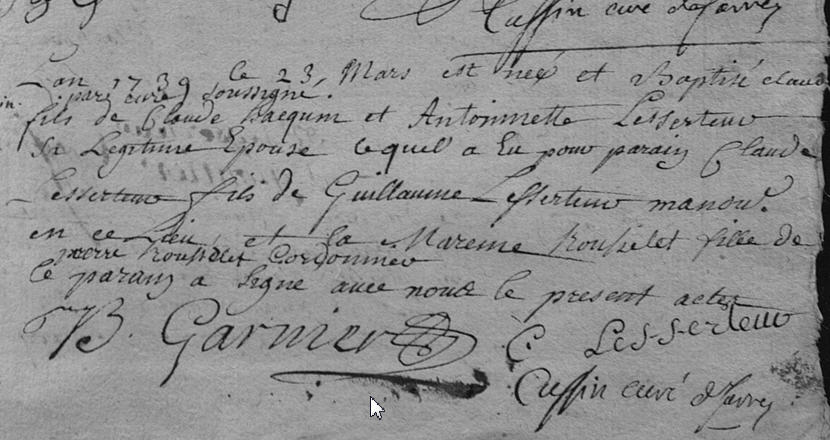 Cussin curé de Jarrey
L'an 1739 le 23, Mars est neé et Baptisé claude
par curé soussigné.
fils de Claude Jacquin et Antoinnette Lesserteur
sa Legitime Epouse lequel a Eu pour parain Claude
Lesserteur fils de Guillaume Lesserteur manou.
en ce Lieu, et la Mareine Rousselet fille de
pierre Rousselet Cordonnier
le parain a signe avec nous le present acte
B. Garnier C. Lesserteur
Cussin curé